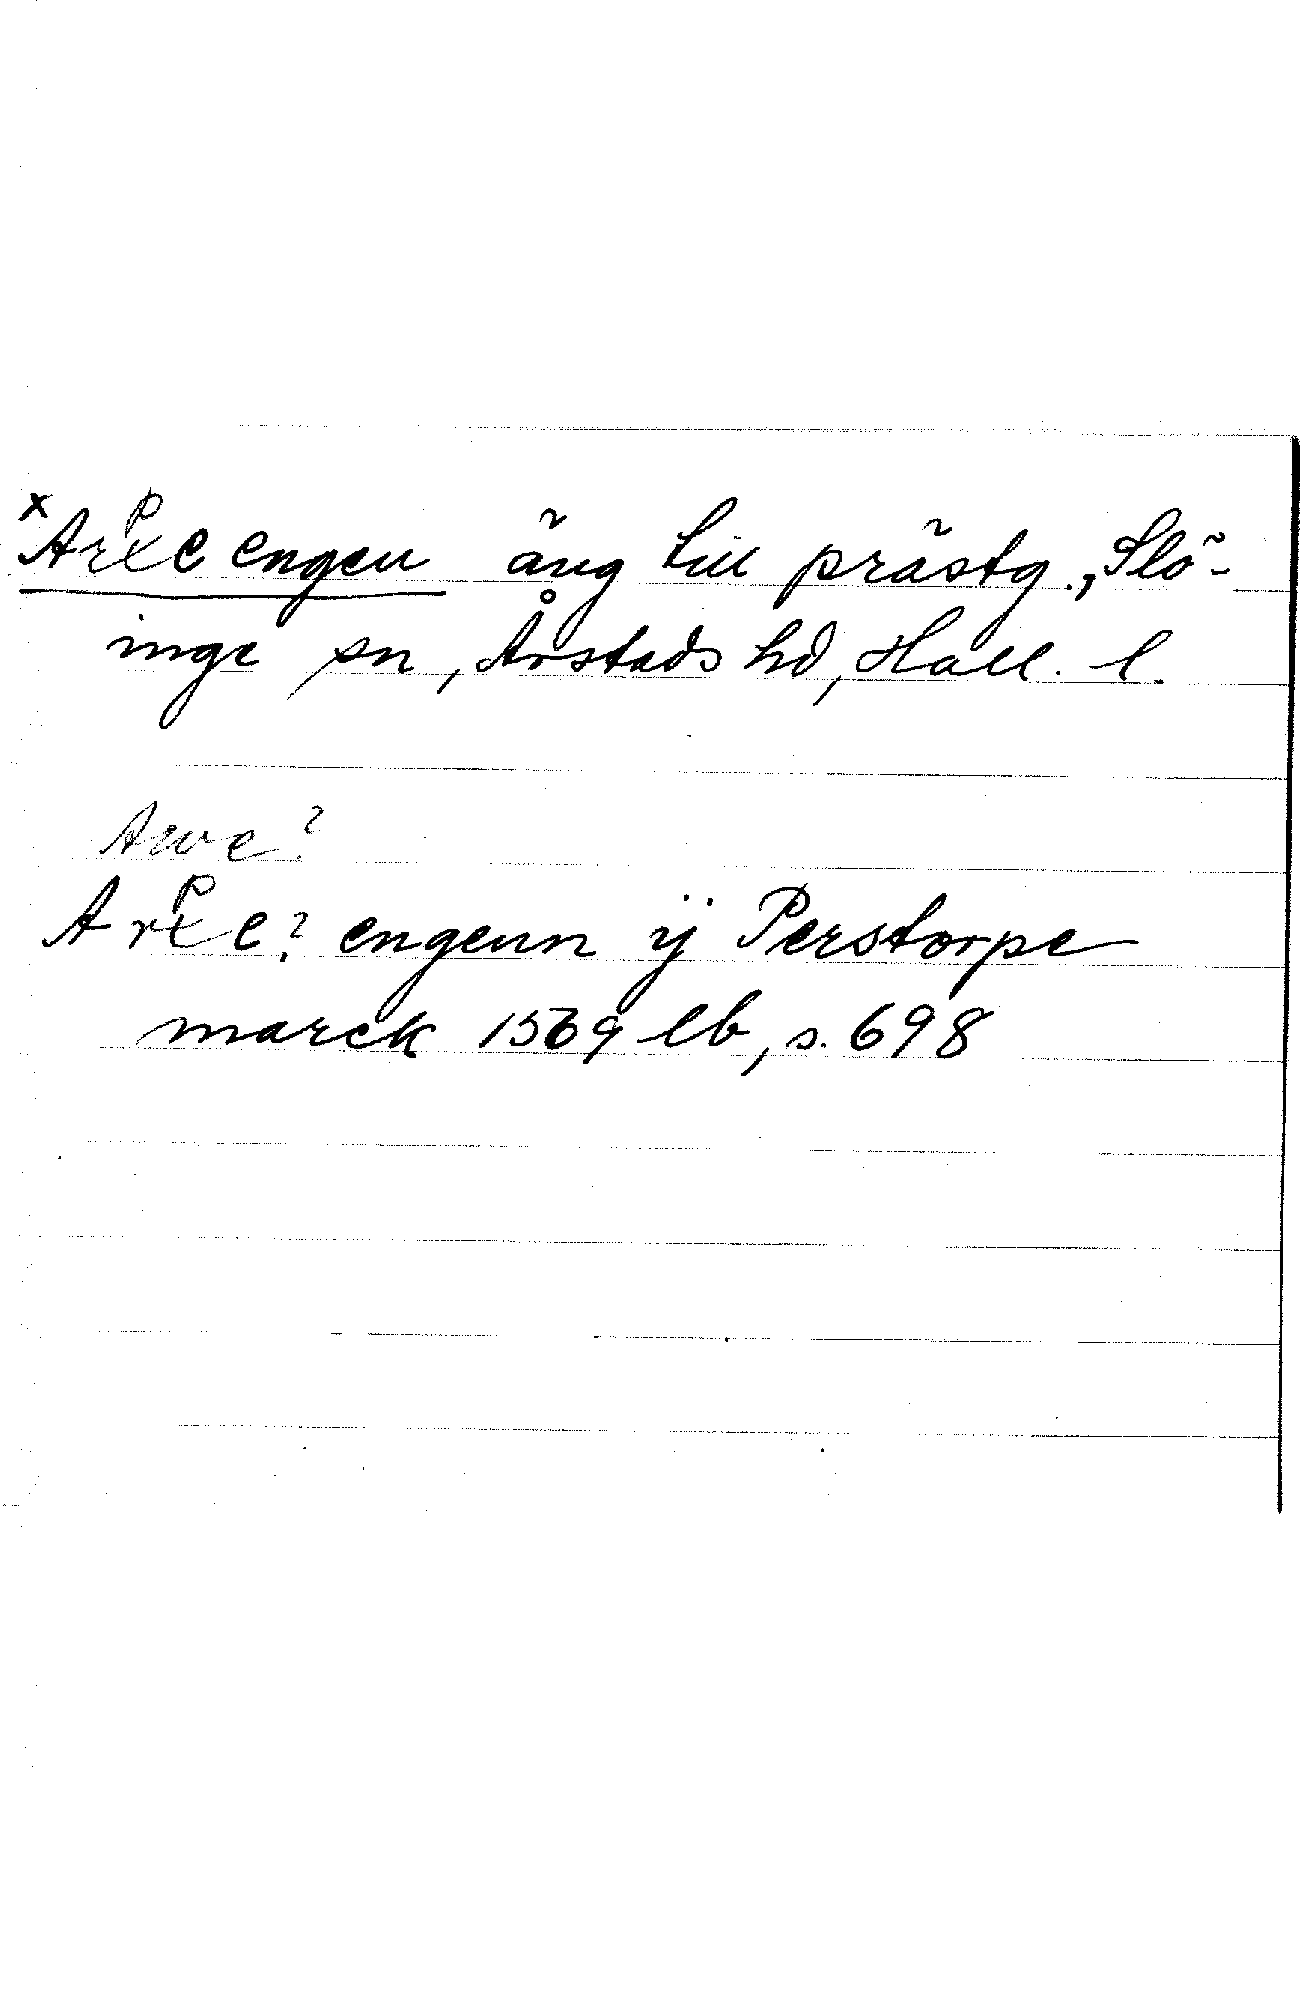 x Arpe engen äng till prästg., Slö-
inge sn, Årstads hd, Hall. l.
Arve?
Arpe? engenn ÿ Perstorpe
marck 1569 lb, s. 698